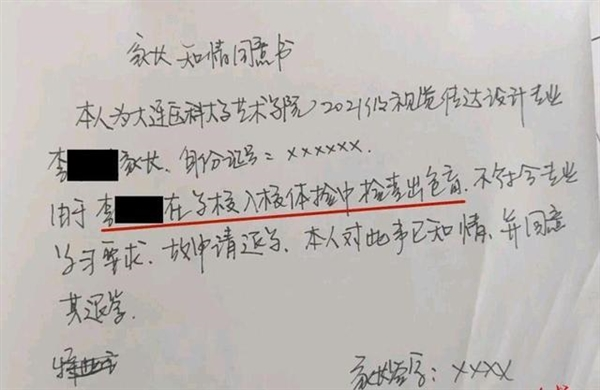 家长知情同意书
本人为大连医科大学艺术学院2021级视觉传达设计专业
李 家长,身份证号:xxxxxx.
由于李 在学校入校体检中检查出色盲.不符合专业
学习要求,故申请退学,本人对此事已知情,并同意
其退学.
家长签字:xxxx